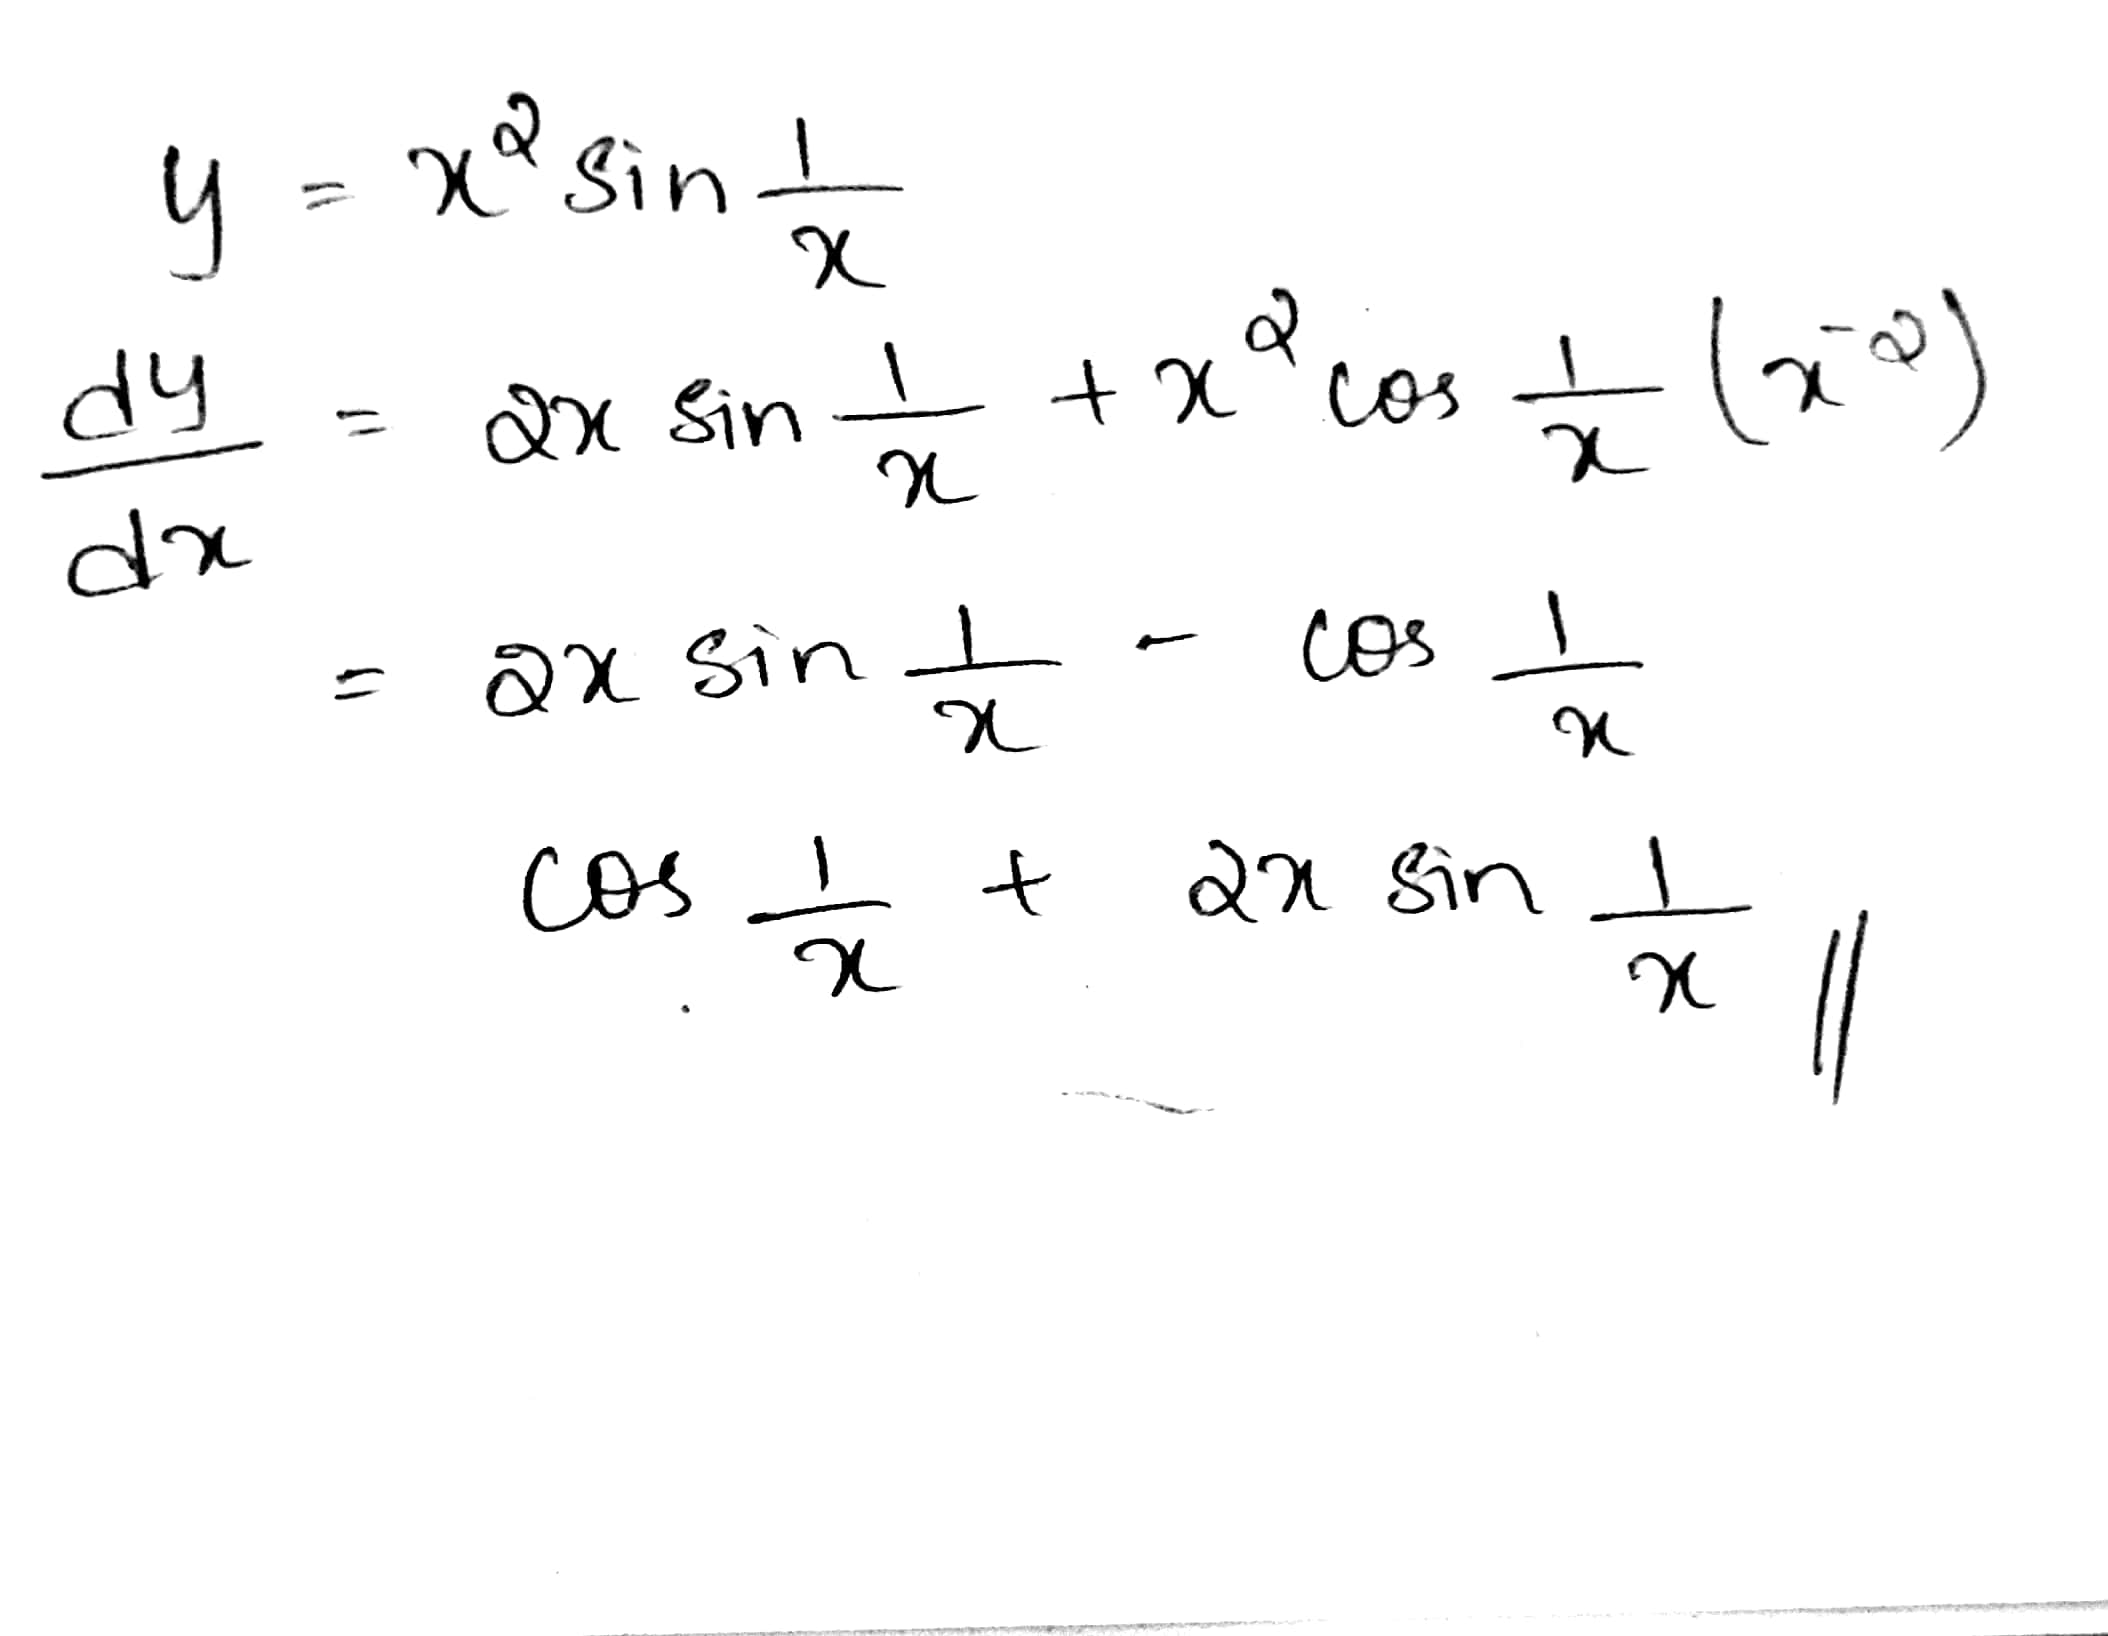 y = x² sin 1/x
dy/dx = 2x sin 1/x + x² cos 1/x (x⁻²)
= 2x sin 1/x - cos 1/x
cos 1/x + 2x sin 1/x //